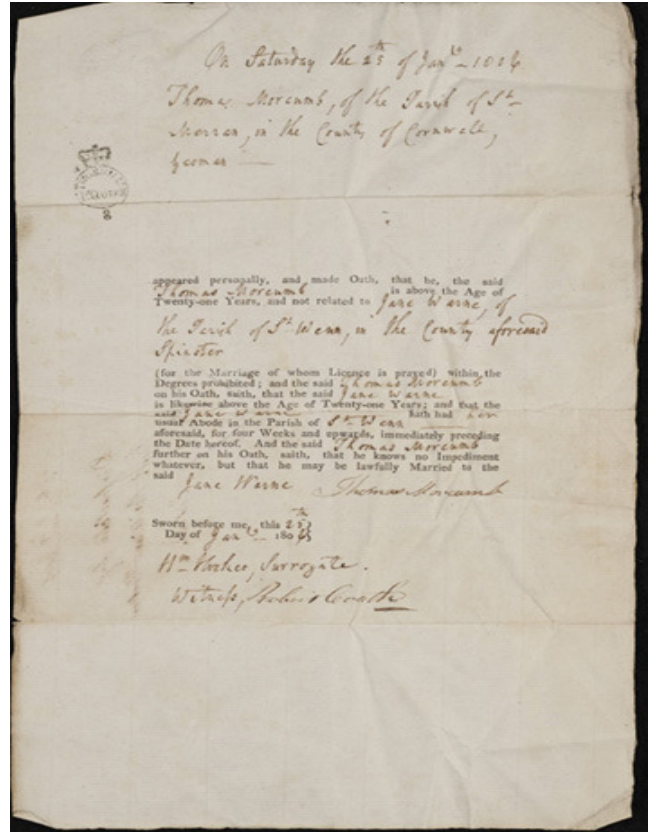 On Saturday the 25th of Jany 1806
Thomas Morcumb, of the Parish of St
Merran, in the County of Cornwall,
Yeoman
appeared personally, and made Oath, that he, the said
Thomas Morcumb is above the Age of
Twenty-one Years, and not related to Jane Warne, of
the Parish of St Wenn, in the County aforesaid
Spinster
(for the Marriage of whom Licence is prayed) within the
Degrees prohibited; and the said Thomas Morcumb
on his Oath, saith, that the said Jane Warne
is likewise above the Age of Twenty-one Years; and that the
said Jane Warne hath had her
usual Abode in the Parish of St Wenn
aforesaid, for four Weeks and upwards, immediately preceding
the Date hereof. And the said Thomas Morcumb
further on his Oath, saith, that he knows no Impediment
whatever, but that he may be lawfully Married to the
said Jane Warne Thomas Morcumb
Sworn before me, this 25th
Day of Jany 1806
Wm Surrogate.
Witness, Robert